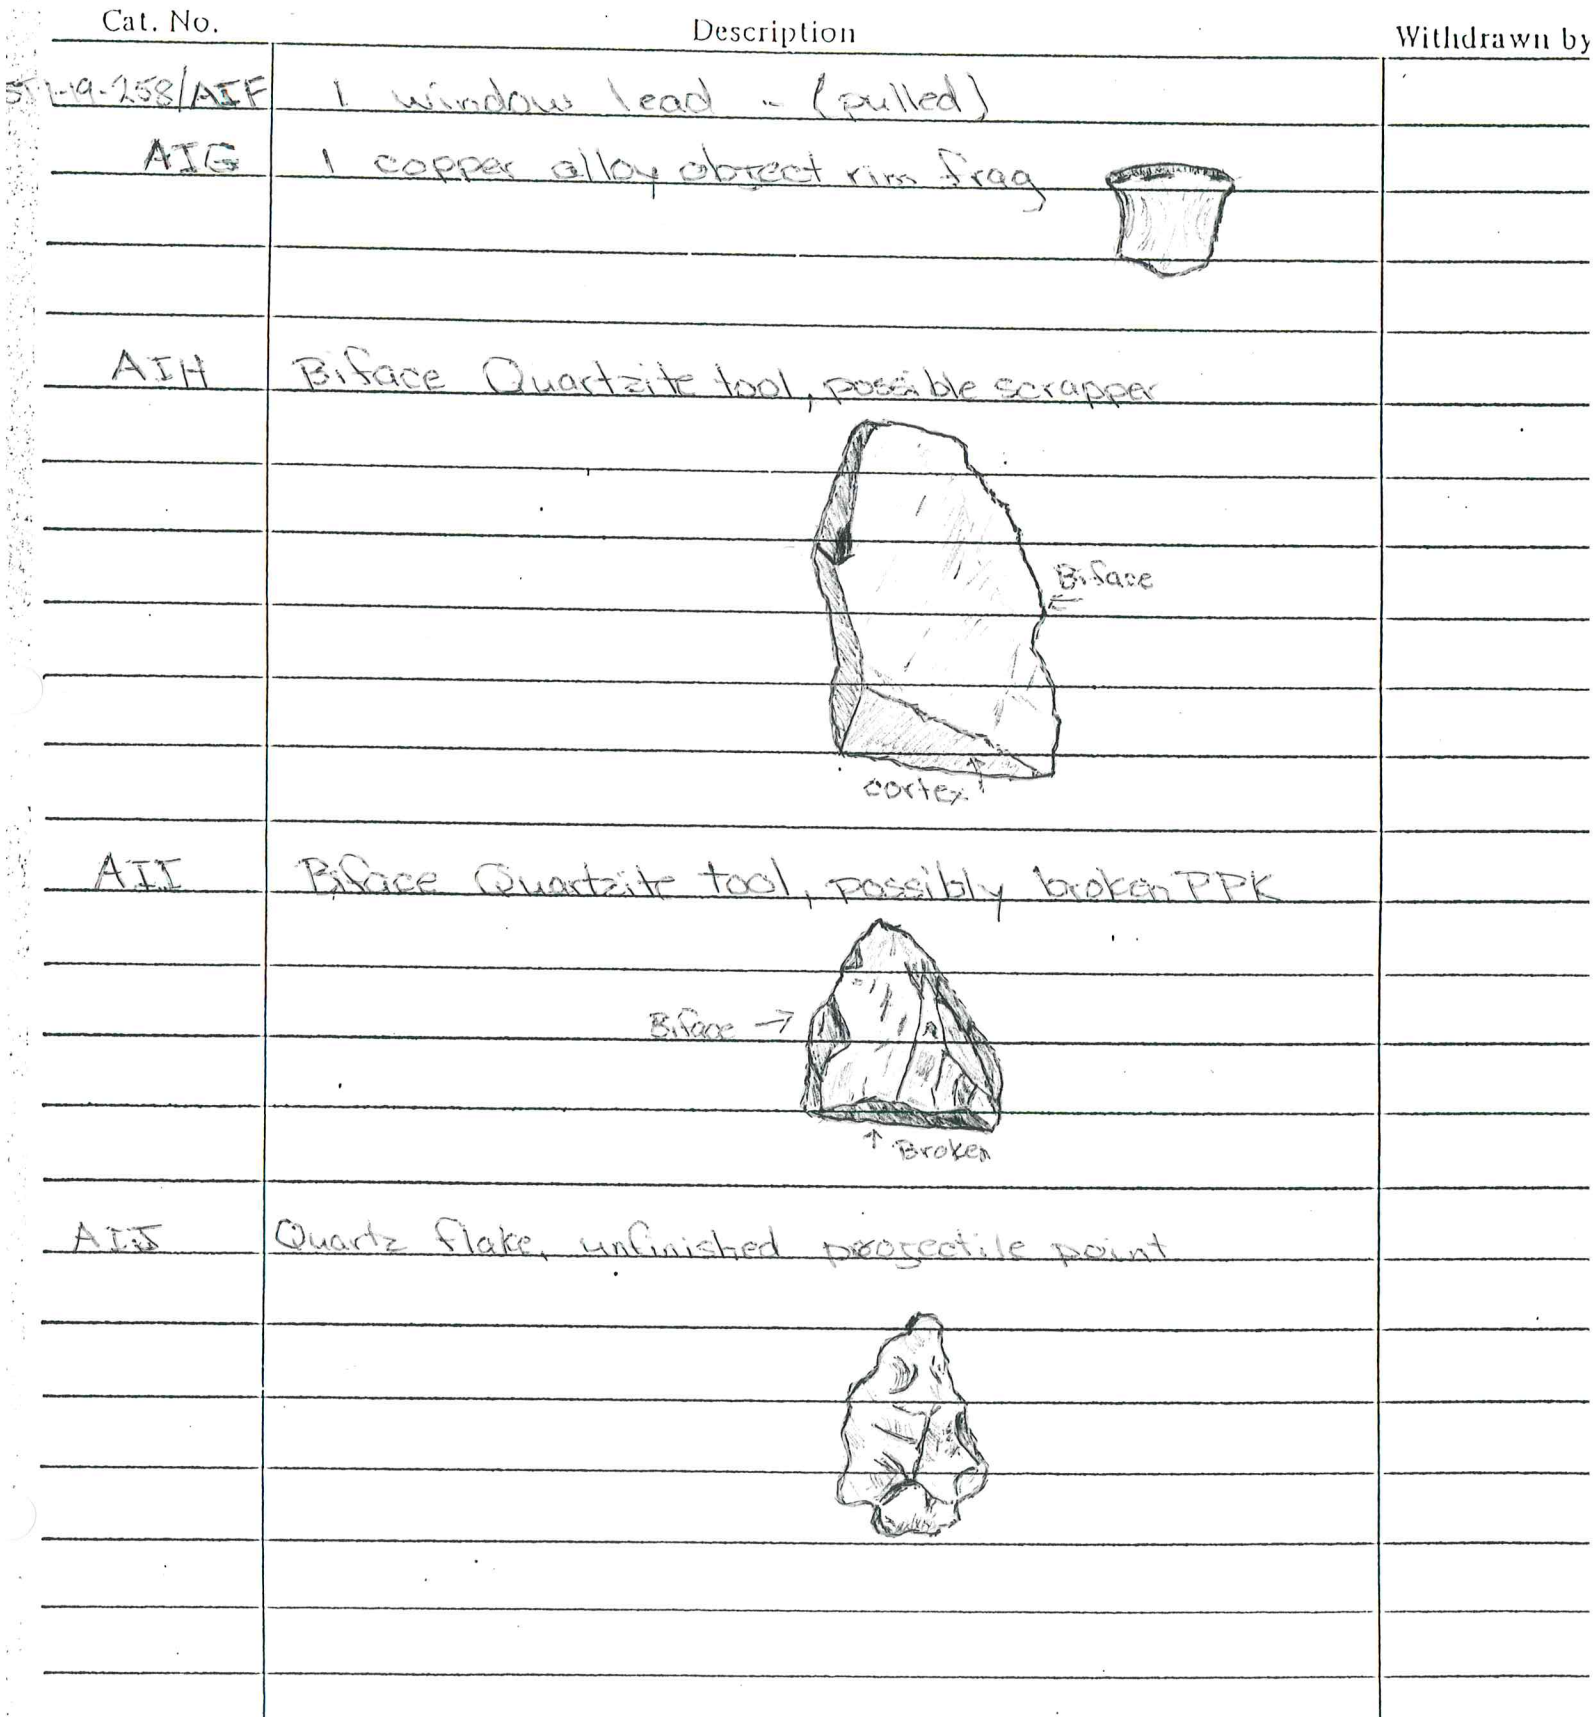 Cat. No. Description Withdrawn by
ST1-19-258/AIF 1 window lead - (pulled)
AIG 1 copper alloy object rim frag
AIH Biface Quartzite tool, possible scrapper
Biface
cortex
AII Biface Quartzite tool, possibly broken PPK
Biface →
↑ Broken
AIJ Quartz flake, unfinished projectile point